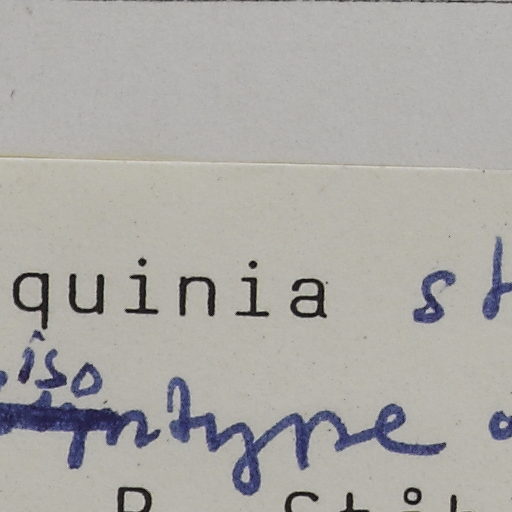 quinia st
iso
type
B. Ståh